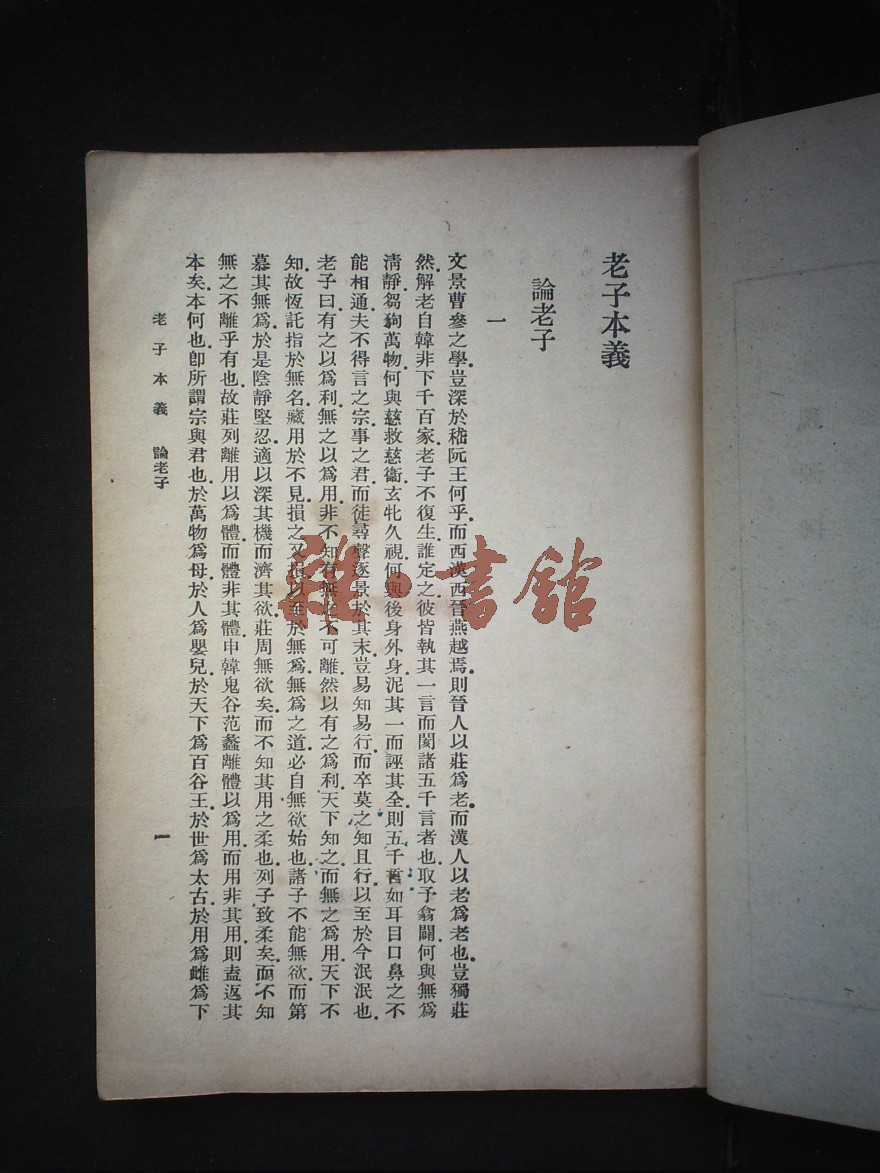 老子本義
論老子
一
文景曹參之學豈深於嵇阮王何乎而西漢西晉燕越焉則晉人以莊爲老而漢人以老爲老也豈獨莊
然解老自韓非下千百家老子不復生誰定之彼皆執其一言而閡諸五千言者也取予翕闢何與無爲
清靜芻狗萬物何與慈救慈衞玄牝久視何與後身外身泥其一而誣其全則五千言如耳目口鼻之不
能相通夫不得言之宗事之君而徒尋聲逐景於其末豈易知易行而卒莫之知且行以至於今泯泯也
老子曰有之以爲利無之以爲用非不知有無之不可離然以有之爲利天下知之而無之爲用天下不
知故恆託指於無名藏用於不見損之又損以至於無爲無爲之道必自無欲始也諸子不能無欲而第
慕其無爲於是陰靜堅忍適以深其機而濟其欲莊周無欲矣而不知其用之柔也列子致柔矣而不知
無之不離乎有也故莊列離用以爲體而體非其體申韓鬼谷范蠡離體以爲用而用非其用則盍返其
本矣本何也卽所謂宗與君也於萬物爲母於人爲嬰兒於天下爲百谷王於世爲太古於用爲雌爲下
老子本義 論老子
一
雜·書館